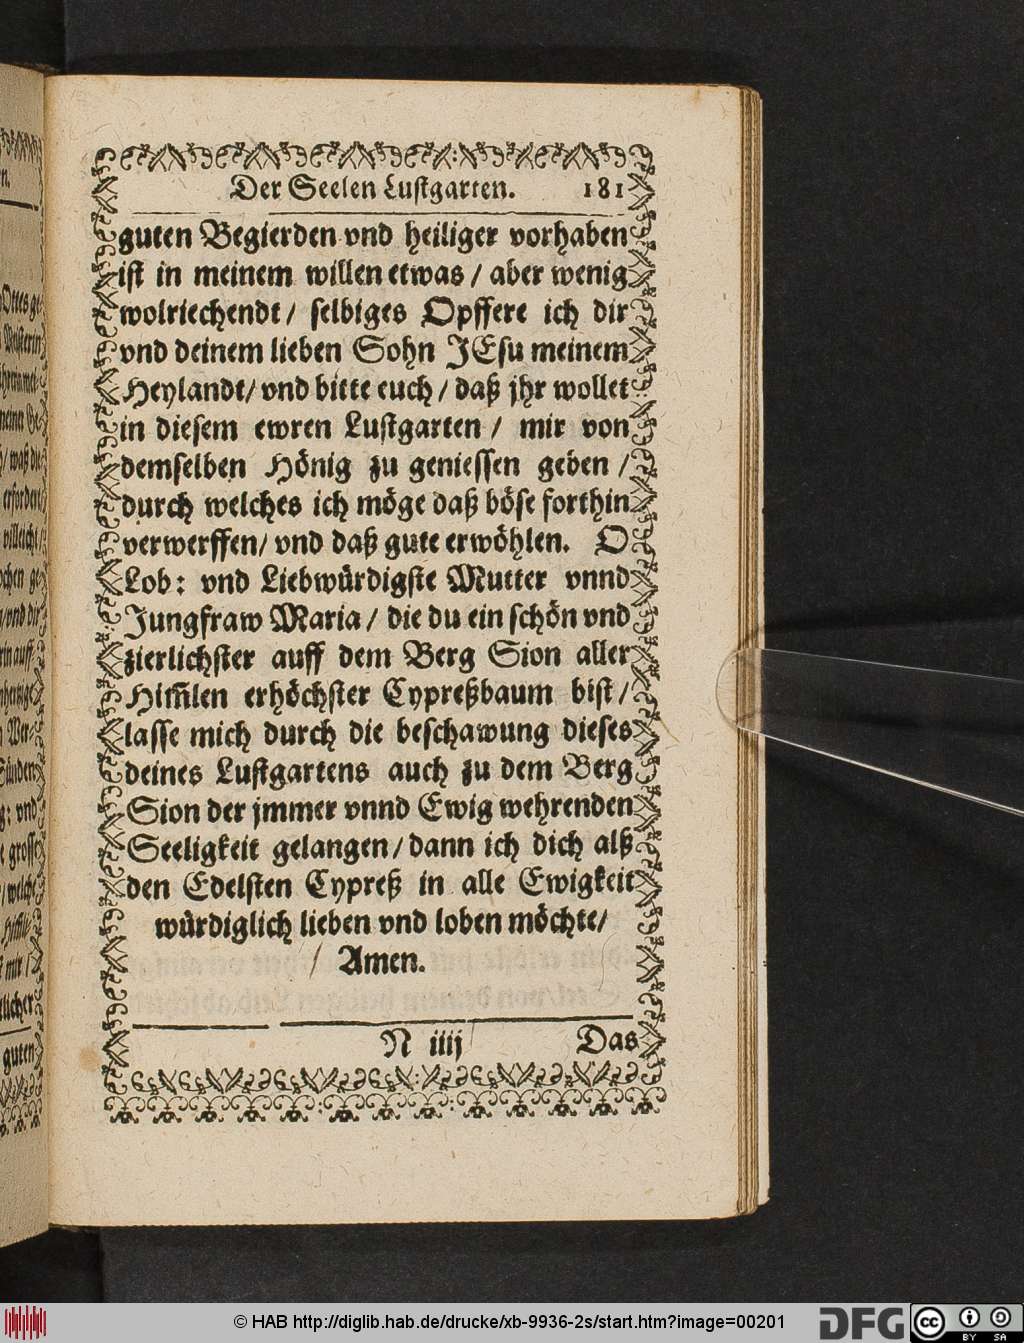 Der Seelen Lustgarten. 181
guten Begierden vnd heiliger vorhaben
ist in meinem willen etwas / aber wenig
wolriechendt / selbiges Opffere ich dir
vnd deinem lieben Sohn JEsu meinem
Heylandt / vnd bitte euch / daß jhr wollet
in diesem ewren Lustgarten / mir von
demselben Hönig zu geniessen geben /
durch welches ich möge daß böse forthin
verwerffen / vnd daß gute erwöhlen. O
Lob: vnd Liebwürdigste Mutter vnnd
Jungfraw Maria / die du ein schön vnd
zierlichster auff dem Berg Sion aller
Him̃len erhöchster Cypreßbaum bist /
lasse mich durch die beschawung dieses
deines Lustgartens auch zu dem Berg
Sion der jmmer vnnd Ewig wehrenden
Seeligkeit gelangen / dann ich dich alß
den Edelsten Cypreß in alle Ewigkeit
würdiglich lieben vnd loben möchte /
Amen.
N iiij Das
guten
© HAB http://diglib.hab.de/drucke/xb-9936-2s/start.htm?image=00201
DFG
cc BY SA